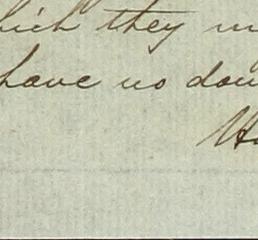 hich they m
have no dou